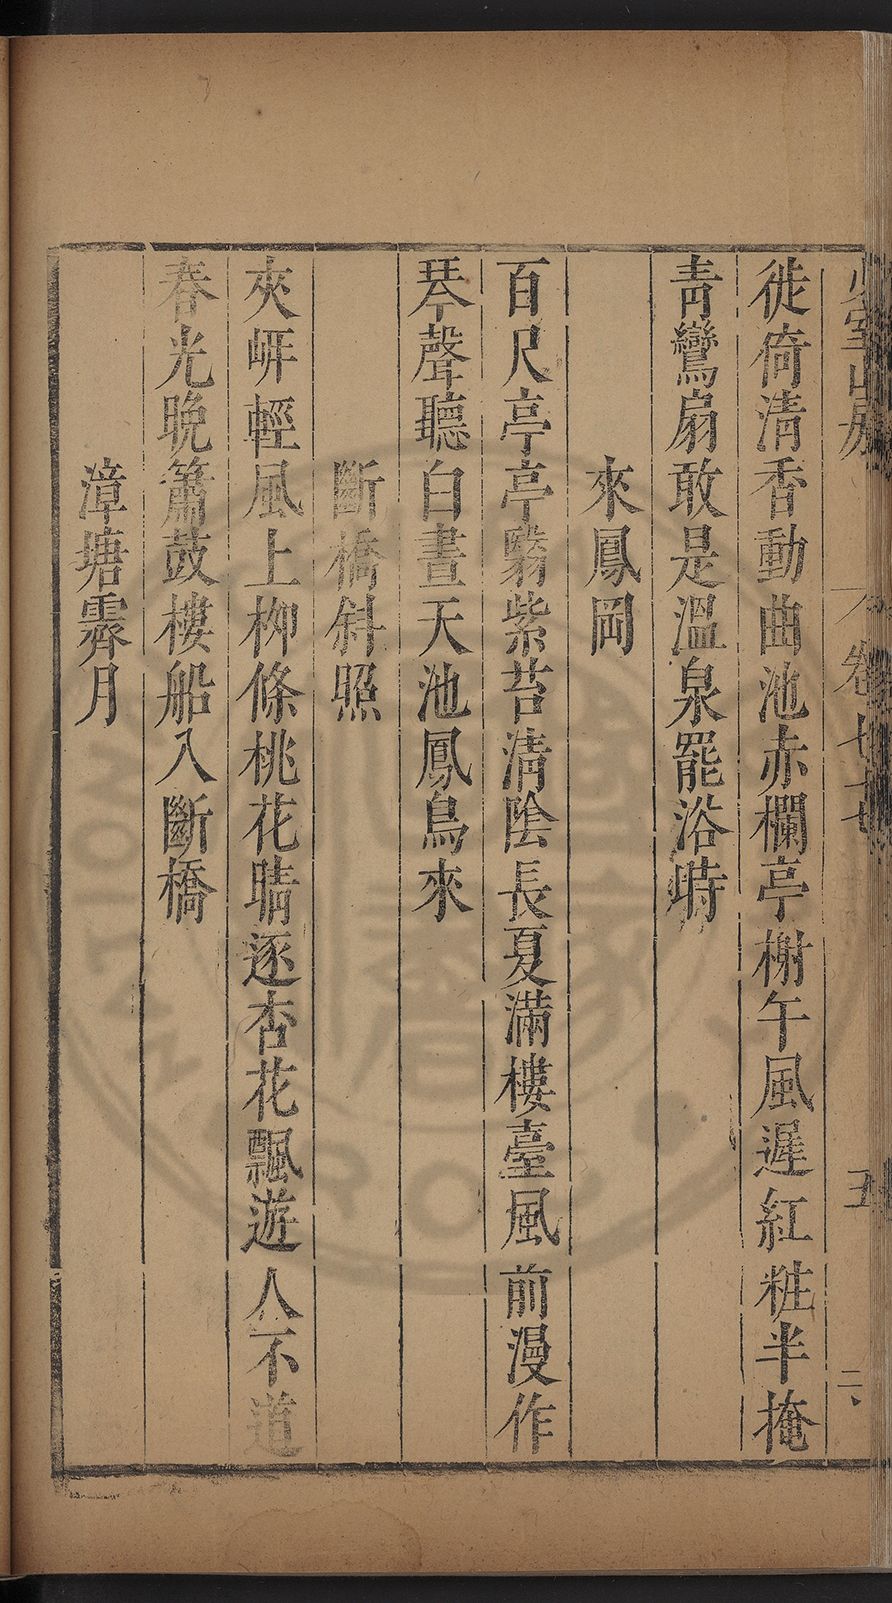 少室山房
卷七十七
五
二
徙倚清香動曲池赤欄亭榭午風遲紅粧半掩
青鸞扇敢是溫泉罷浴時
來鳳岡
百尺亭亭翳紫苔清陰長夏滿樓臺風前漫作
琴聲聽白晝天池鳳鳥來
斷橋斜照
夾岍輕風上柳條桃花晴逐杏花飄遊人不道
春光晚簫鼓樓船入斷橋
漳塘霽月